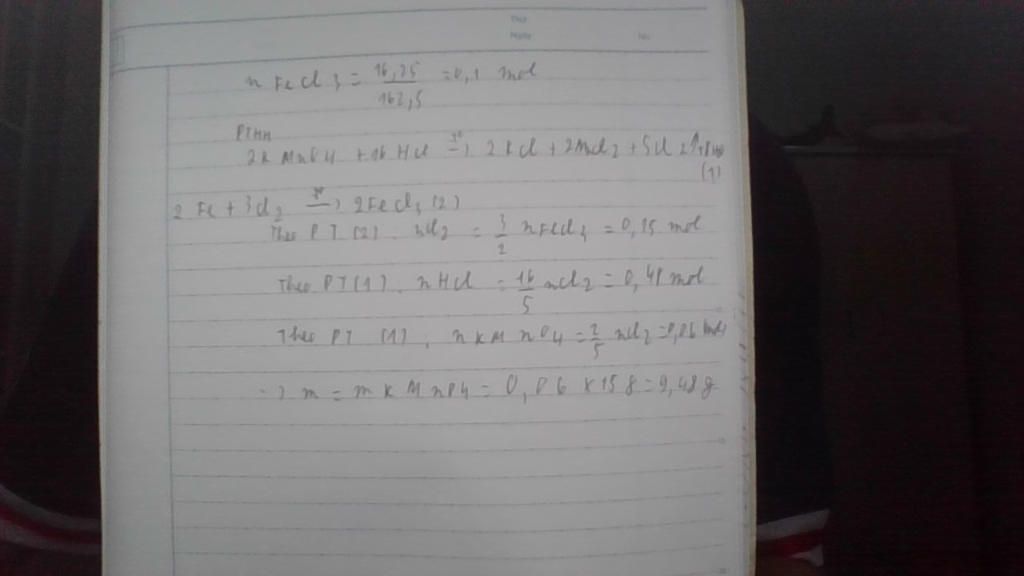 n FeCl3 = 16,25 / 162,5 = 0,1 mol
PTHH
2KMnO4 + 16HCl t° → 2KCl + 2MnCl2 + 5Cl2↑ + 8H2O
(1)
2Fe + 3Cl2 t° → 2FeCl3 (2)
Theo PT (2). nCl2 = 3/2 nFeCl3 = 0,15 mol
Theo PT (1). nHCl = 16/5 nCl2 = 0,48 mol
Theo PT (1), nKMnO4 = 2/5 nCl2 = 0,06 mol
→ m = mKMnO4 = 0,06 x 158 = 9,48 g